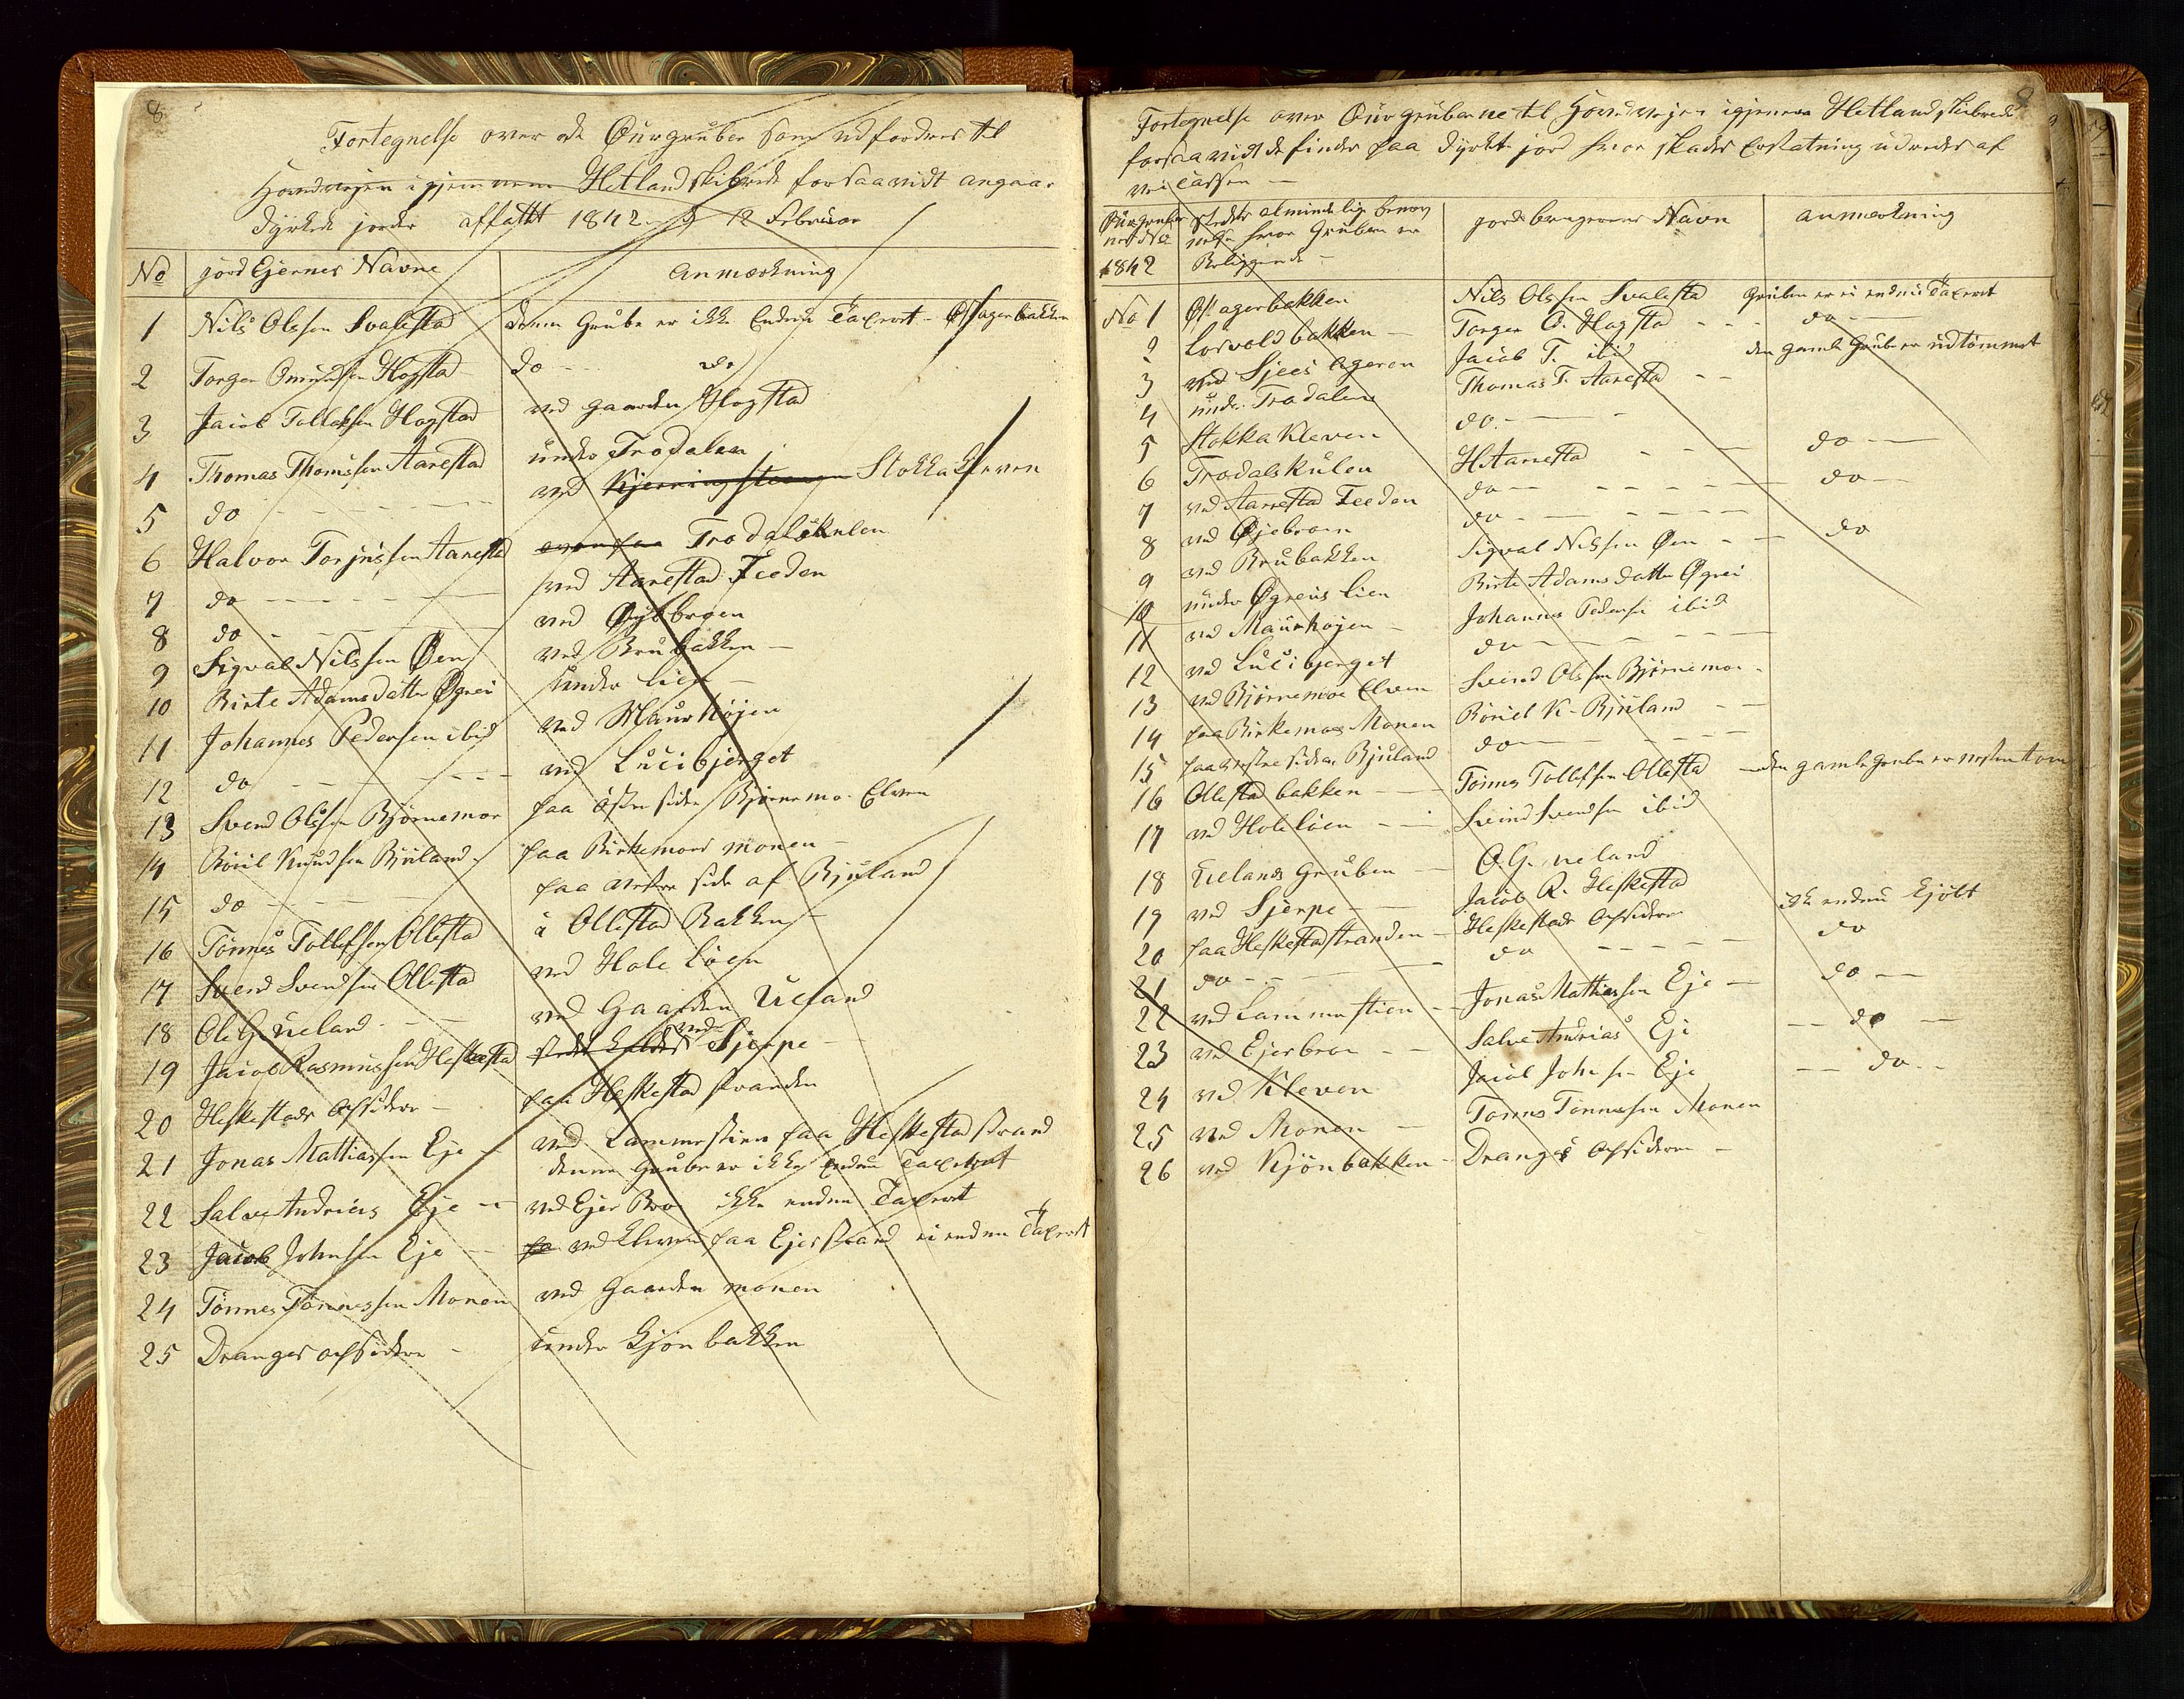 8
Fortegnelse over de Øurgruber som udfordres til
Hovedvejen igjennem Hetland skibrede forsaavidt angaar
dyrkede jorder affattet 1842 12 Februar
No jord Ejernes Navne Anmærkning
1 Nils Olssen Svalestad denne Grube er ikke Endnu Taxeret - Østagerbakken
2 Torger Omundsen Hogstad do do
3 Jacob Tollaksen Hogstad ved gaarden Hogstad
4 Thomas Thomissen Aarrestad under Trodalen
5 do ved Kjerringstangen Stokkakleven
6 Halvor Torjussen Aarrestad ovenfaa Trodalskulen
7 do ved Aarrestad Feeden
8 do ved Øyebroen
9 Sigval Nilssen Øen ved Brubakken
10 Birte Adamsdatter Øgrei under lien
11 Johannes Pedersen ibid ved Maurhøjen
12 do ved Lucibjerget
13 Svend Olssen Bjørnemoe paa østre siden Bjørnemo Elven
14 Børiel Knudsen Bjuland paa Birkemoes monen
15 do paa vestre side af Bjuland
16 Tønnes Tollefsen Ollestad i Ollestad Bakken
17 Svend Svendsen Ollestad ved Hole løen
18 Ole G Ueland ved Gaarden Ueland
19 Jacob Rasmussen Heskestad stedet kaldes ved Sjerpe
20 Heskestads Opsiddere paa Heskestad stranden
21 Jonas Mattiassen Eje ved Lammestien paa Heskestad strand
denne Grube er ikke endnu Taxeret
22 Salve Andreas Eje ved Ejer Bro ikke endnu Taxeret
23 Jacob Johnsen Eje paa ved Kleven paa Ejerstrand ei endnu Taxeret
24 Tønnes Tønnessen Monen ved Gaarden monen
25 Dranges opsiddere under Kjøn bakken
9
Fortegnelse over Øurgruberne til Hovedvejen igjennem Hetland skibrede
forsaavidt de findes paa dyrket jord hvor skades Erstatning udredes af
vei Cassen
Øurgruber med No 1842 Stedets almindelige benævnelse hvor Gruben er Beliggende jordbrugerens Navn Anmærkning
No 1 Østagerbakken Nils Olssen Svalestad Gruben er ei endnu Taxeret
2 Losvoldbakken Torger O. Hogstad do
3 ved Sjeei Ageren Jacob T. ibid den gamle Grube er udtømmet
4 under Trodalen Thomas T. Aarrestad
5 Stokkakleven do
6 Trodalskulen H Aarrestad do
7 ved Aarrestad Feeden do do
8 ved Øjebroen do
9 ved Brubakken Sigval Nilssen Øen do
10 under Øgreis lien Birte Adamsdatter Øgrei
11 ved Maurhøjen Johannes Pedersen ibid
12 ved Lucibjerget do
13 ved Bjørnemoe Elven Svend Olssen Bjørnemoe
14 paa Birkemoes Monen Børiel K. Bjuland
15 paa vestre siden Bjuland do
16 Ollestad bakken Tønnes Tollefsen Ollestad den gamle grube er nesten tom
17 ved Hole løen Svend Svendsen ibid
18 Uelands Gruben O. G. Ueland
19 ved Sjerpe Jacob R. Heskestad
20 paa Heskestadstranden Heskestads Opsiddere ikke endnu Kjøbt
21 do do do
22 ved Lammestien Jonas Mattiassen Eje do
23 ved Ejerbroe Salve Andrias Eje do
24 ved Kleven Jacob Johnsen Eje do
25 ved Monen Tønnes Tønnessen Monen
26 ved Kjönbakken Dranges Opsiddere